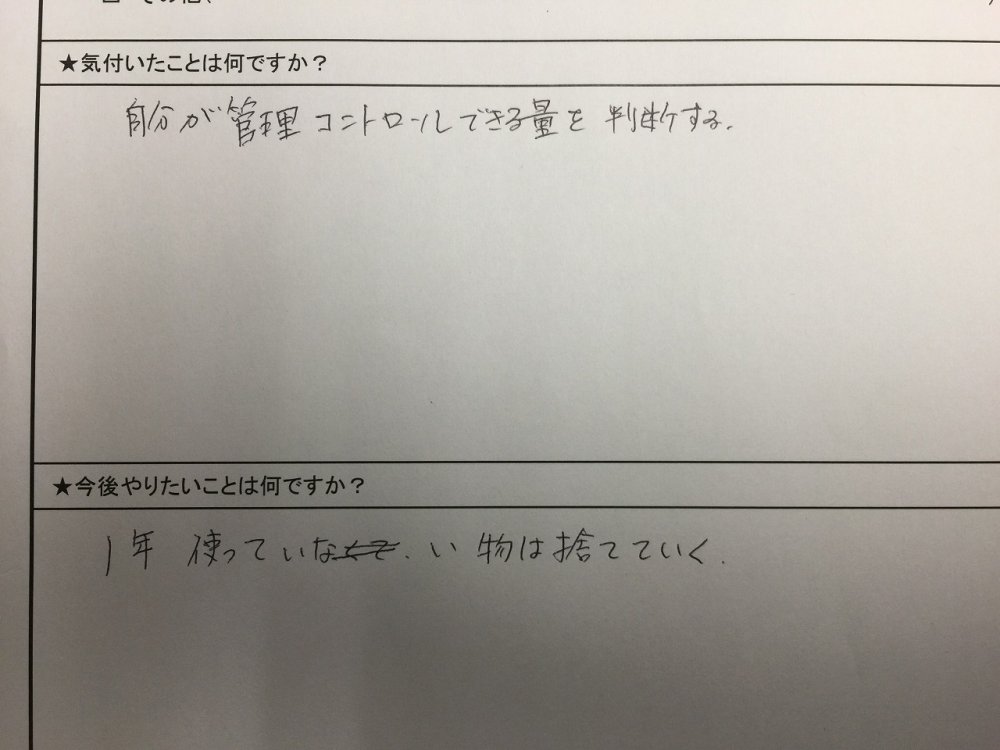 ★気付いたことは何ですか？
自分が管理コントロールできる量を判断する.
★今後やりたいことは何ですか？
1年 使っていない 物は捨てていく.